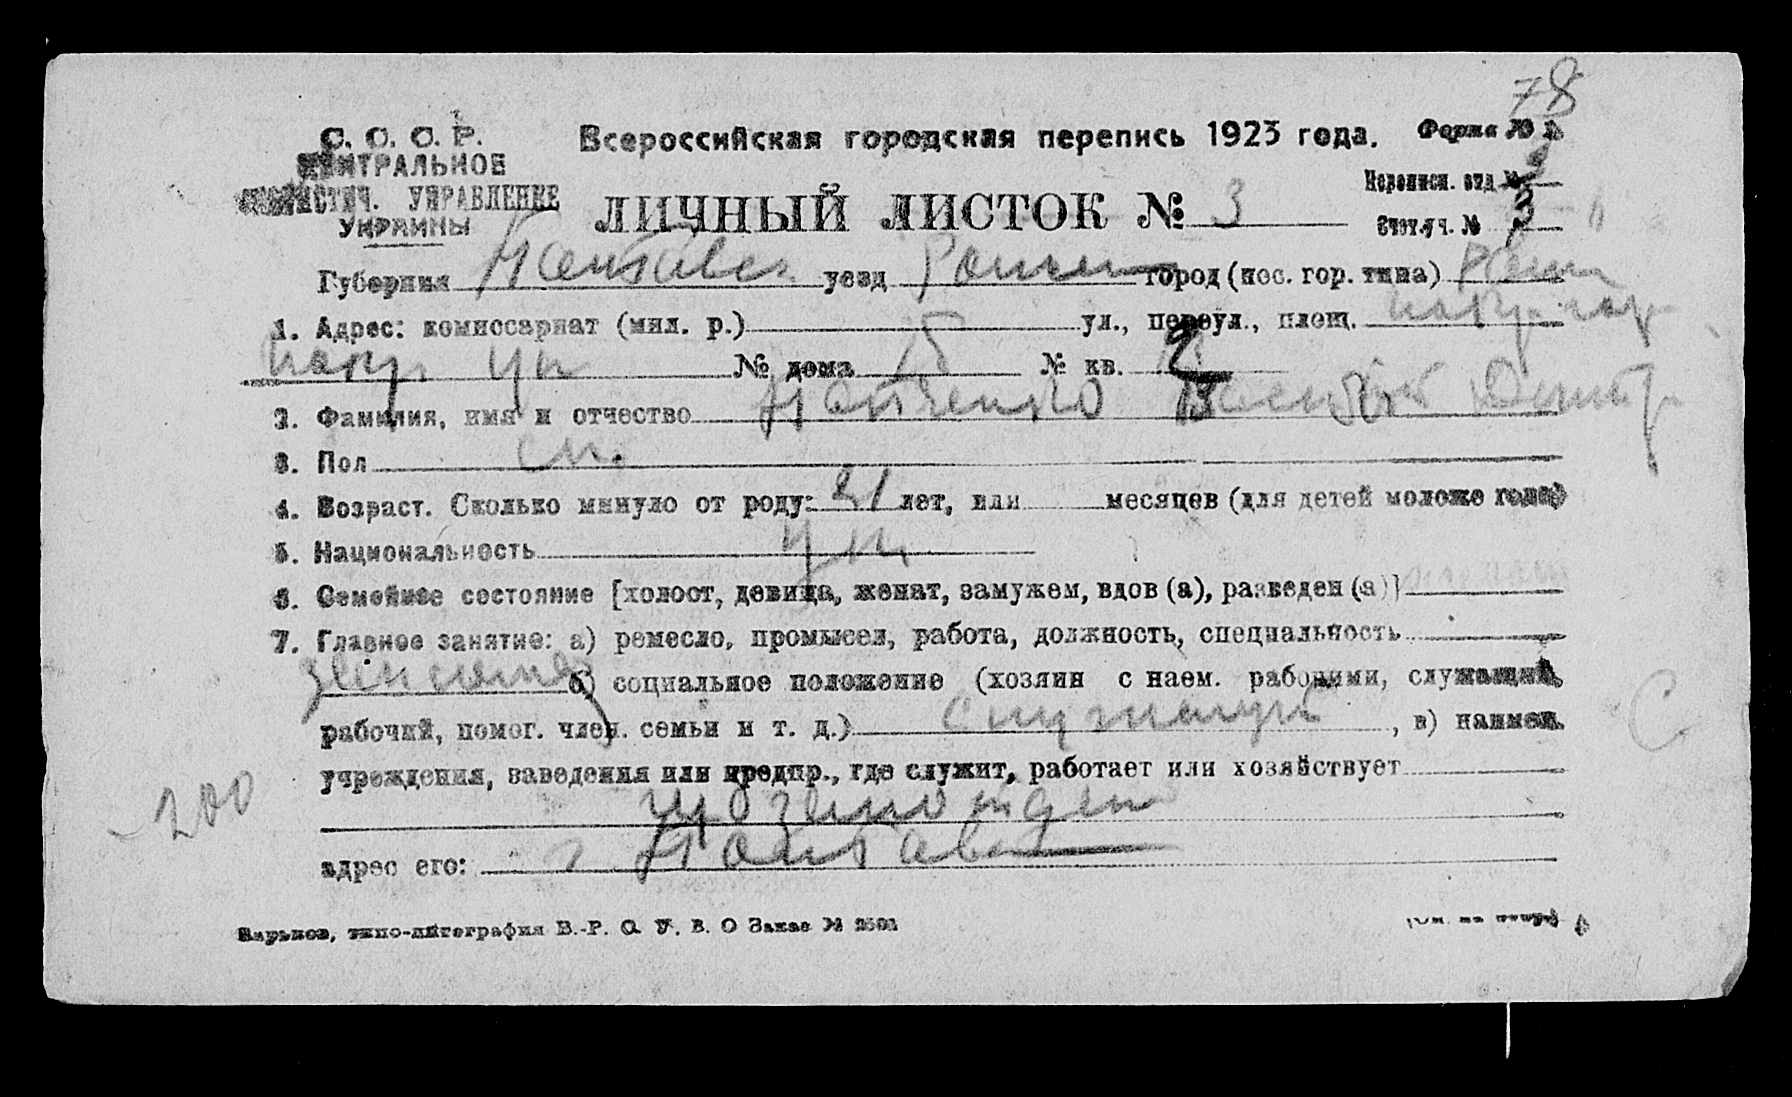 78
С. С. С. Р.
ЦЕНТРАЛЬНОЕ
СТАТИСТИЧ. УПРАВЛЕНИЕ
УКРАИНЫ
Всероссийская городская перепись 1923 года.
Форма №
ЛИЧНЫЙ ЛИСТОК № 3
Переписн. отд. №
Счетн. уч. № 3
Губерния Полтавск уезд Ромен город (пос. гор. типа) Ромн
1. Адрес: комиссариат (мил. р.) ул., переул., площ.
№ дома 15 № кв. 2
2. Фамилия, имя и отчество Василий Дмитр
3. Пол м.
4. Возраст. Сколько минуло от роду: 21 лет, или месяцев (для детей моложе года)
5. Национальность Ук
6. Семейное состояние [холост, девица, женат, замужем, вдов (а), разведен (а)]
7. Главное занятие: а) ремесло, промысел, работа, должность, специальность
б) социальное положение (хозяин с наем. рабочими, служащий,
рабочий, помог. член. семьи и т. д.) служащий, в) наимен.
учреждения, заведения или предпр., где служит, работает или хозяйствует
адрес его: г Полтава
С
200
Харьков, типо-литография В.-Р. О. У. В. О Заказ №